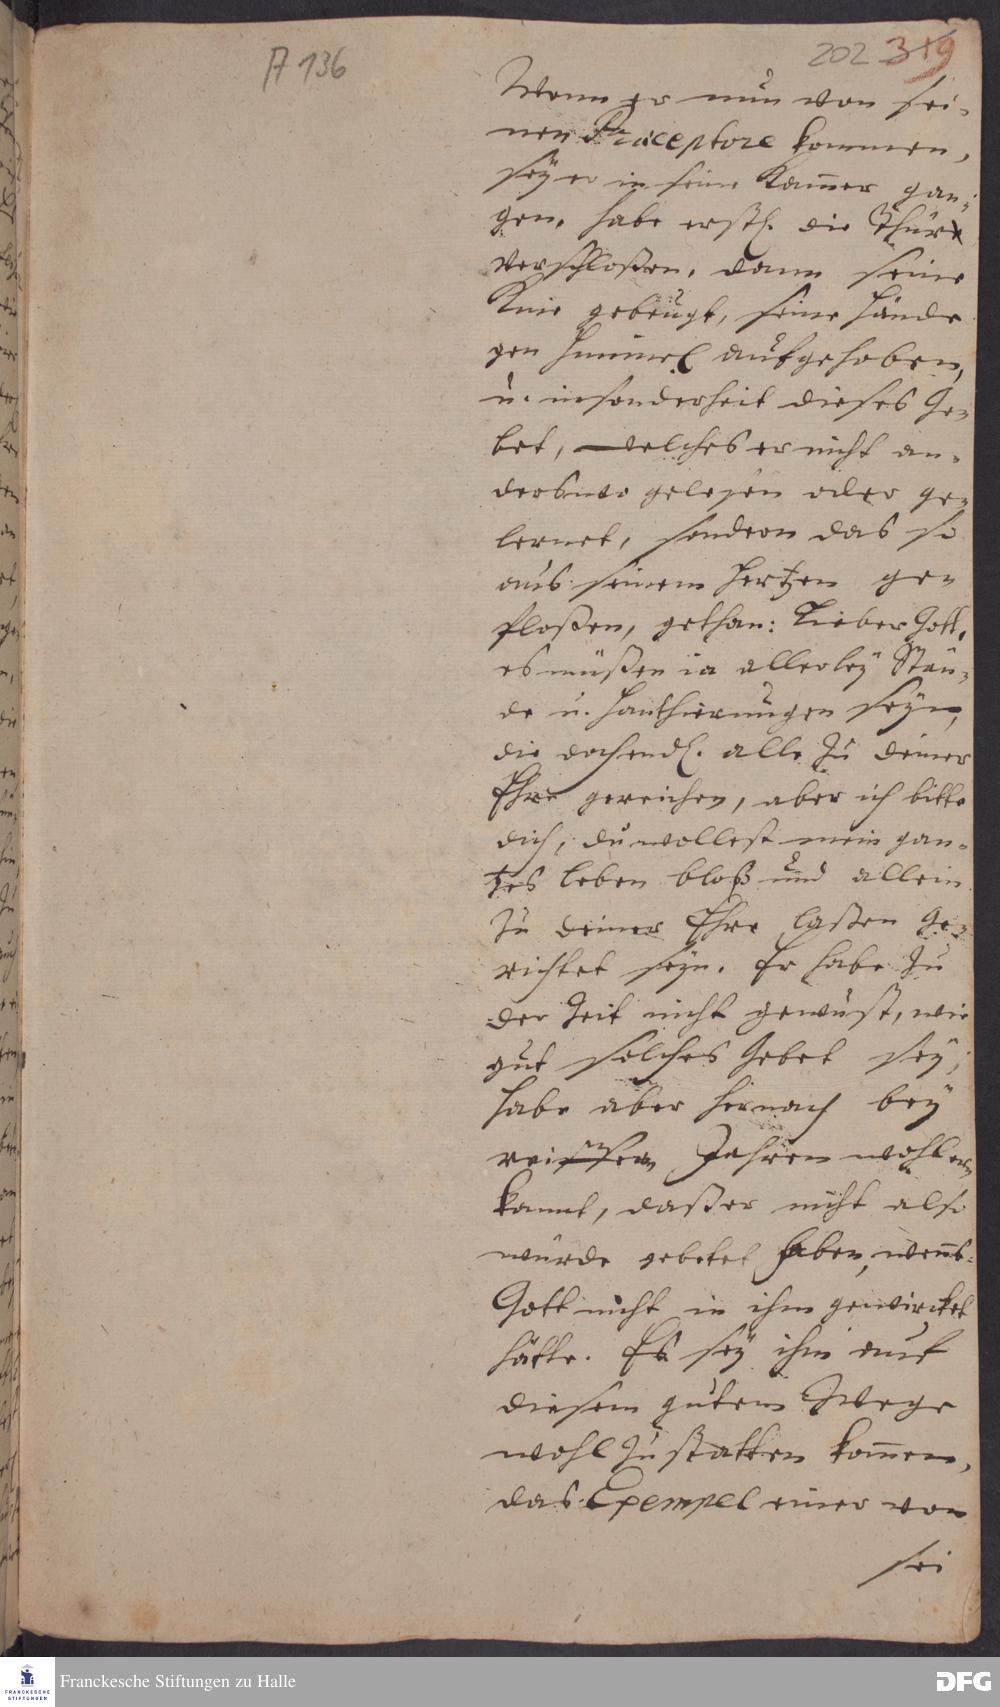 A 136
202 319
Wenn er nun von sei-
nen Præceptore kommen,
sey er in seine Kam̄er gan-
gen, habe erstl. die Thür
verschloßen, dann seine
Knie gebeugt, seine Hände
gen Himmel aufgehoben,
u. insonderheit dieses Ge-
bet, welches er nicht an-
derswo gelesen oder ge-
lernet, sondern das so
aus seinem Hertzen ge-
floßen, gethan: Lieber Gott,
es müßen ia allerley Stän-
de u. Hanthierungen seyn,
die doch endl. alle zu deiner
Ehre gereichen, aber ich bitte
dich, du wollest mein gan-
tzes leben bloß und allein
zu deiner Ehre laßen ge-
richtet seyn. Er habe zu
der Zeit nicht gewust, wie
gut solches Gebet sey,
habe aber hernach bey
Jahren wohl er-
kannt, daß er nicht also
würde gebetet haben, wenn
Gott nicht in ihm gewircket
hätte. Es sey ihm auf
diesem gutem Wege
wohl zu statten kom̄en,
das Exempel einer von
sei
Franckesche Stiftungen zu Halle
FRANCKESCHE STIFTUNGEN
DFG